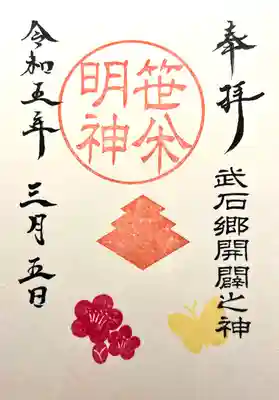 奉拝
武石郷開闢之神
笹焼
明神
令和五年 三月 五日